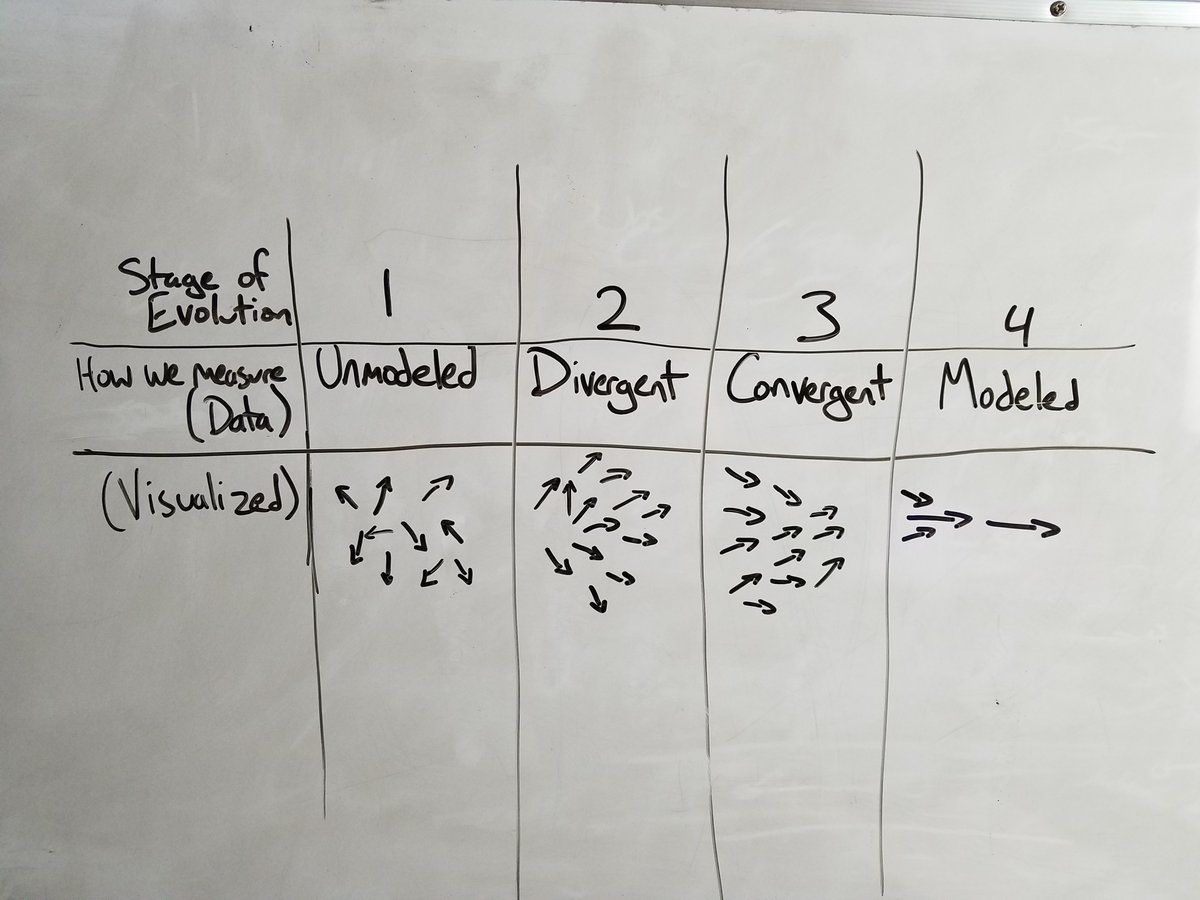 Stage of
Evolution
1
2
3
4
How we measure
(Data)
Unmodeled
Divergent
Convergent
Modeled
(Visualized)